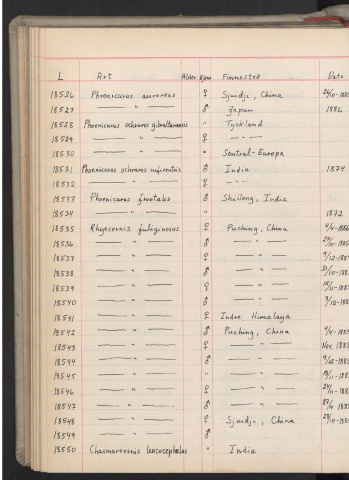 L Art Alder Kjønn Finnested Dato
18526 Phoenicurus auroreus ♀ Sjuidji, China 26/10-188
18527 — " — ♂ Japan 1886
18528 Phoenicurus ochruros gibraltariensis " Tyskland
18529 — " — ♀ — " —
18530 — " — " Sentral-Europa
18531 Phoenicurus ochruros rufiventris ♂ India 1874
18532 — " — ♀ — " —
18533 Phoenicurus frontalis ♂ Shillong, India
18534 — " — " 1872
18535 Rhyacornis fuliginosus ♀ Puching, China 4/4-188
18536 — " — ♂ — " — 27/10-188
18537 — " — ♀ — " — 9/12-188
18538 — " — ♂ — " — 31/10-188
18539 — " — ♀ — " — 15/11-188
18540 — " — ♂ — " — 9/12-188
18541 — " — ♀ Indre Himalaya
18542 — " — ♂ Puching, China 4/4-188
18543 — " — ♀ — " — Nov. 188
18544 — " — ♂ — " — 9/12-188
18545 — " — " — " — 18/11-188
18546 — " — ♀ — " — 24/11-188
18547 — " — ♂ — " — 27/9-188
18548 — " — ♀ Sjuidji, China 28/10-188
18549 — " — ♂
18550 Chaimarrornis leucocephalus " India